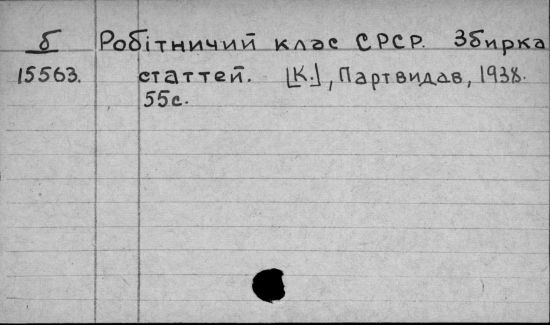 б Робітничий клас СРСР. Збирка
15563. статтей. [К.], Партвидав, 1938.
55с.